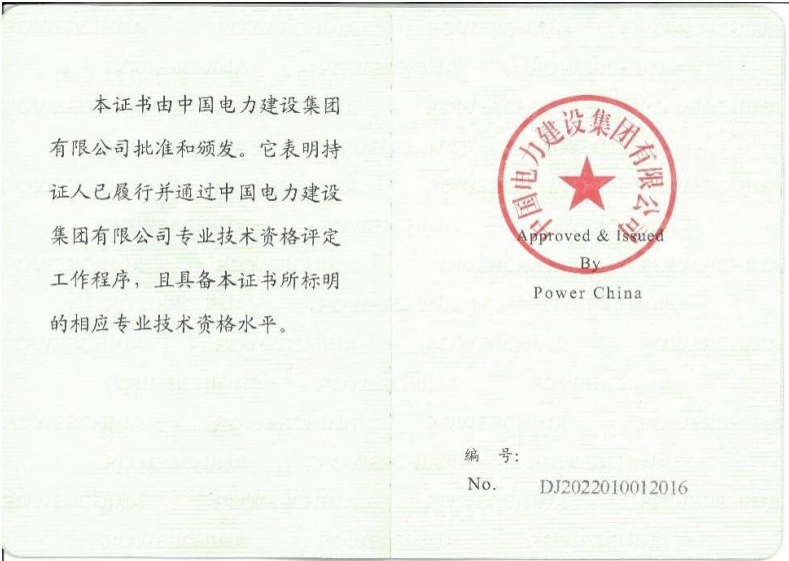 本证书由中国电力建设集团
有限公司批准和颁发。它表明持
证人已履行并通过中国电力建设
集团有限公司专业技术资格评定
工作程序，且具备本证书所标明
的相应专业技术资格水平。
中国电力建设集团有限公司
Approved & Issued
By
Power China
编 号:
No. DJ2022010012016